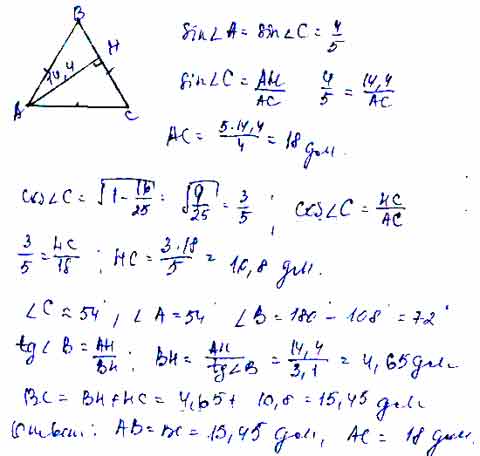 B
H
14,4
A
C
sin∠A = sin∠C = 4/5
sin∠C = AH/AC 4/5 = 14,4/AC
AC = 5·14,4/4 = 18 дм.
cos∠C = √(1 - 16/25) = √(9/25) = 3/5 ; cos∠C = HC/AC
3/5 = HC/18 ; HC = 3·18/5 = 10,8 дм.
∠C ≈ 54°, ∠A = 54° ∠B = 180° - 108° = 72°
tg∠B = AH/BH ; BH = AH/tg∠B = 14,4/3,1 = 4,65 дм
BC = BH + HC = 4,65 + 10,8 = 15,45 дм
Ответ: AB = BC = 15,45 дм, AC = 18 дм.